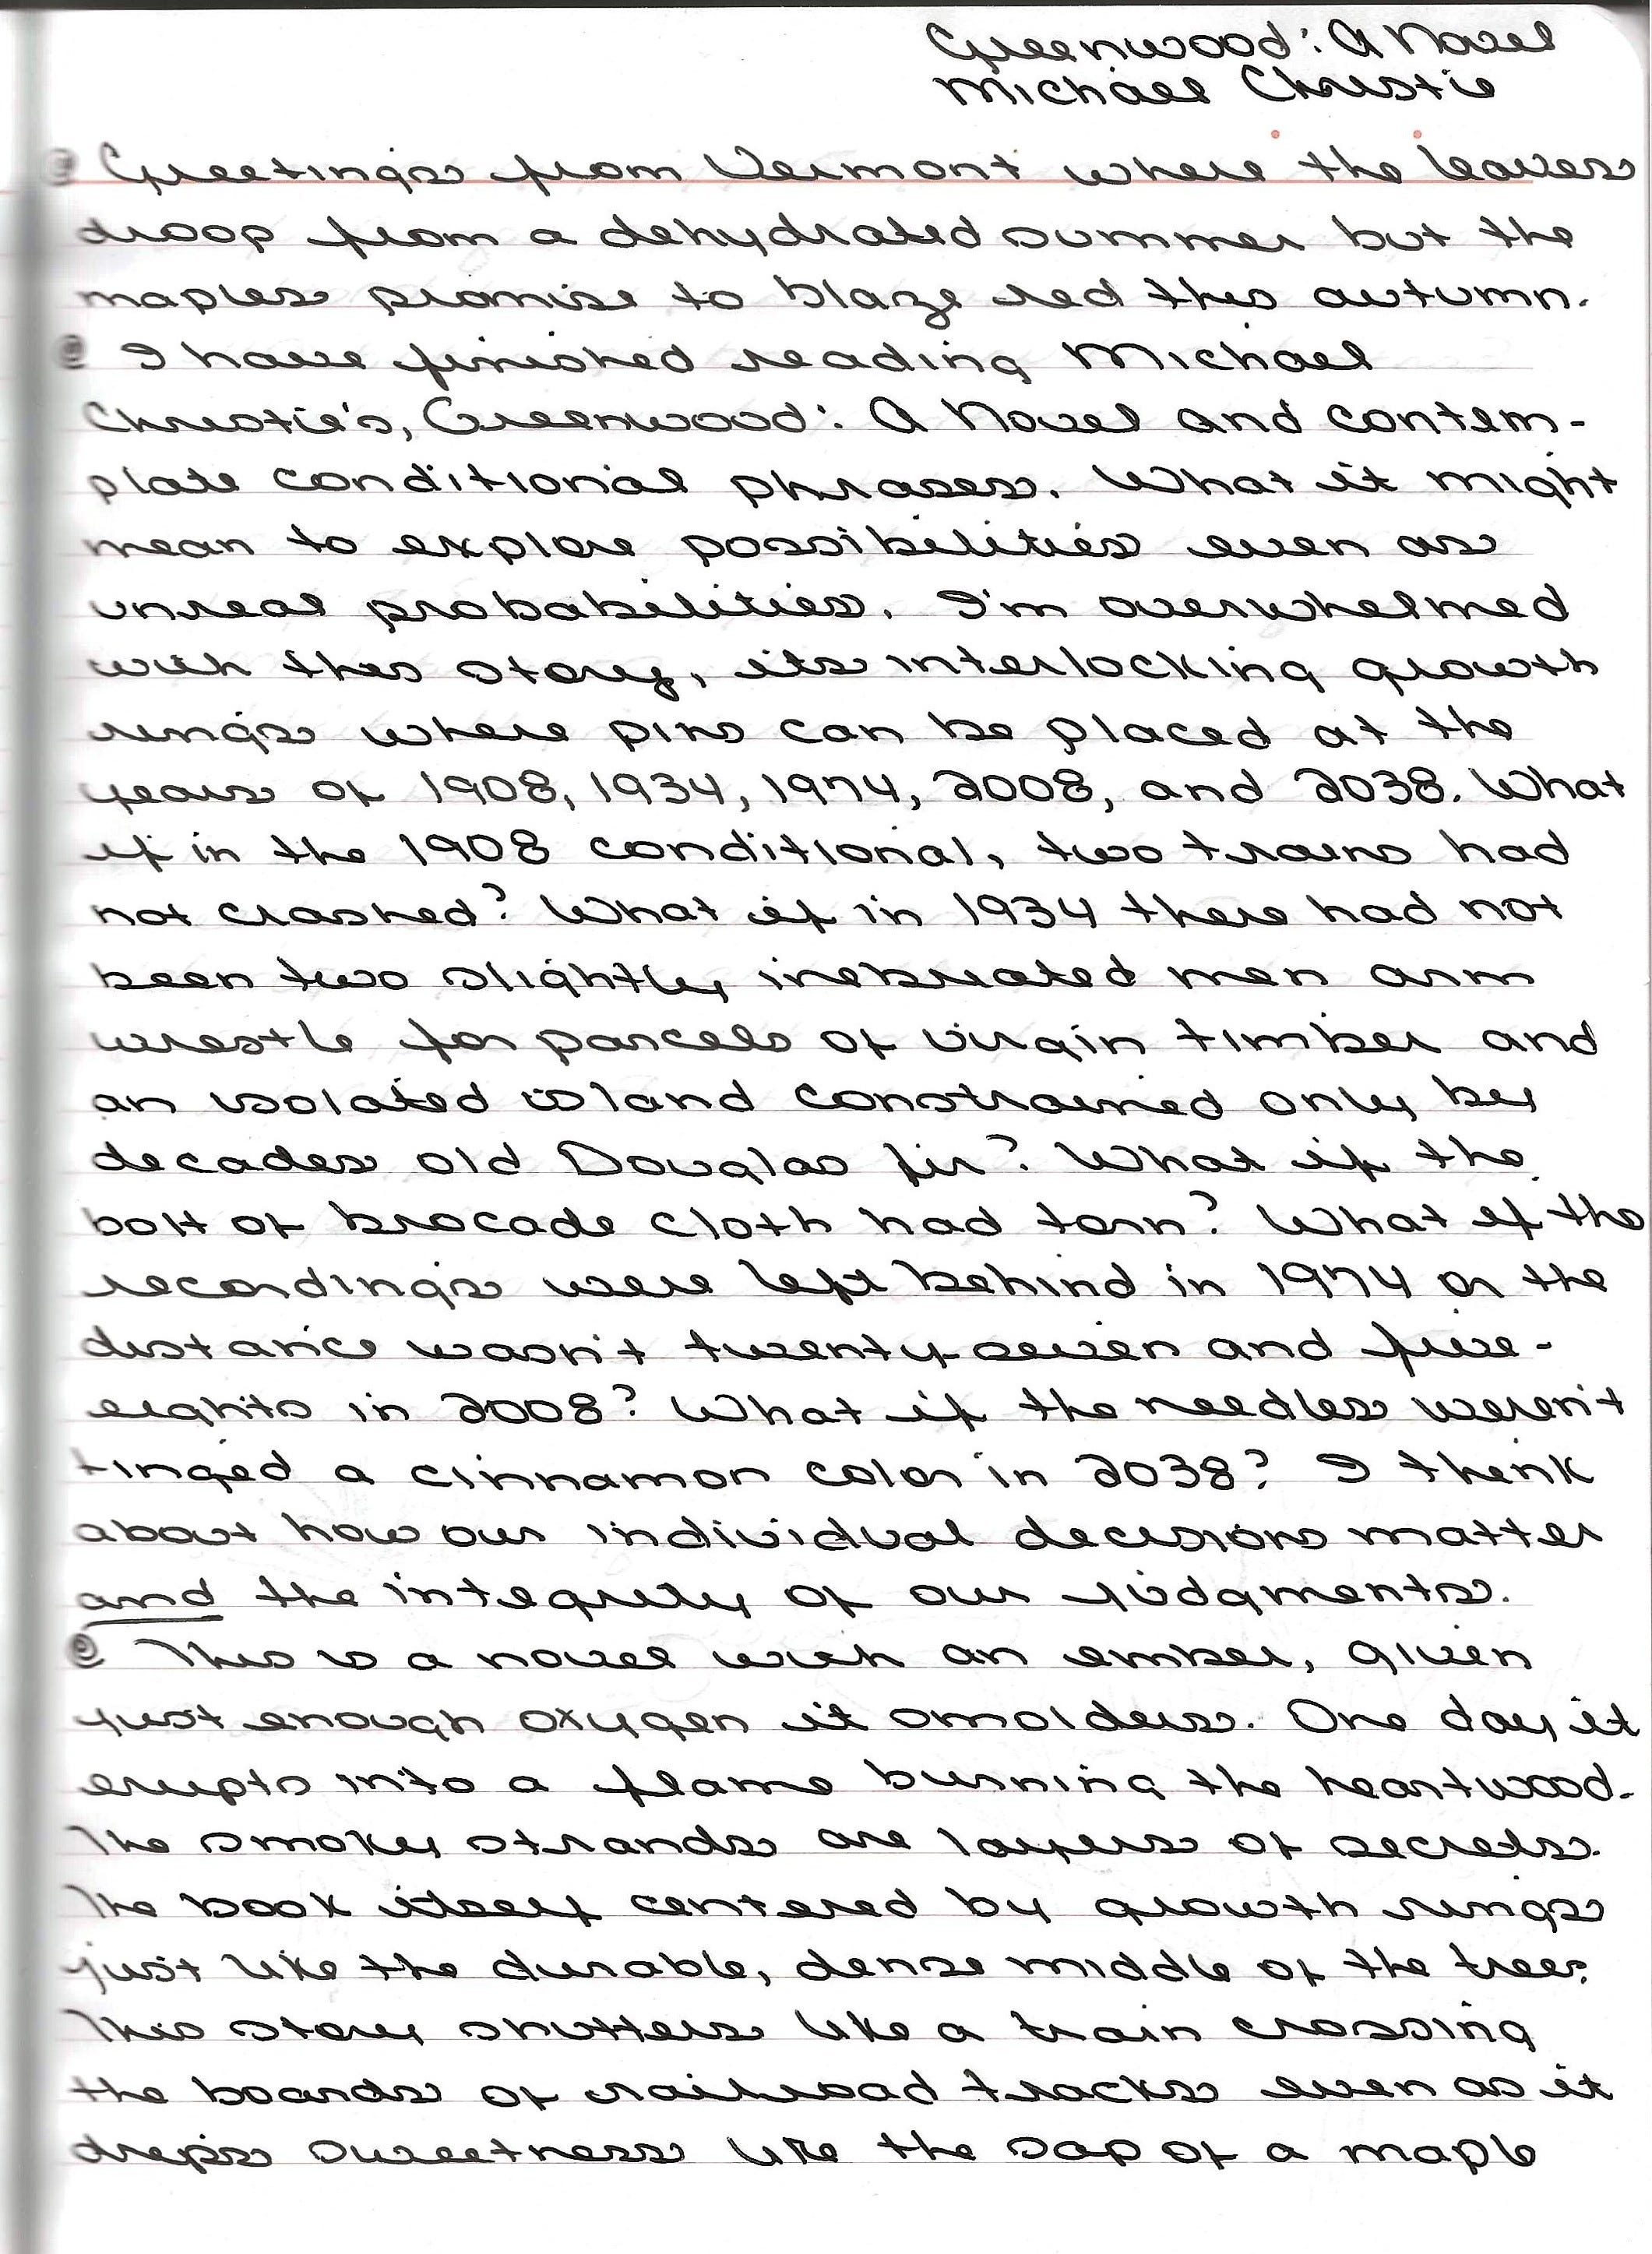 Greenwood: A Novel
Michael Christie
@ Greetings from Vermont where the leaves
droop from a dehydrated summer but the
maples promise to blaze red this autumn.
@ I have finished reading Michael
Christie's, Greenwood: A Novel and contem-
plate conditional phrases. What it might
mean to explore possibilities even as
unreal probabilities. I'm overwhelmed
with this story, its interlocking growth
rings where pins can be placed at the
years of 1908, 1934, 1974, 2008, and 2038. What
if in the 1908 conditional, two trains had
not crashed? What if in 1934 there had not
been two slightly inebriated men arm
wrestle for parcels of virgin timber and
an isolated island constrained only by
decades old Douglas fir? What if the
bolt of brocade cloth had torn? What if the
recordings were left behind in 1974 or the
distance wasn't twenty-seven and five-
eights in 2008? What if the needles weren't
tinged a cinnamon color in 2038? I think
about how our individual decisions matter
and the integrity of our judgments.
@ This is a novel with an ember, given
just enough oxygen it smolders. One day it
erupts into a flame burning the heartwood.
The smokey strands are layers of secrets.
The book itself centered by growth rings
just like the durable, dense middle of the tree.
This story shutters like a train crossing
the boards of railroad tracks even as it
drips sweetness like the sap of a maple